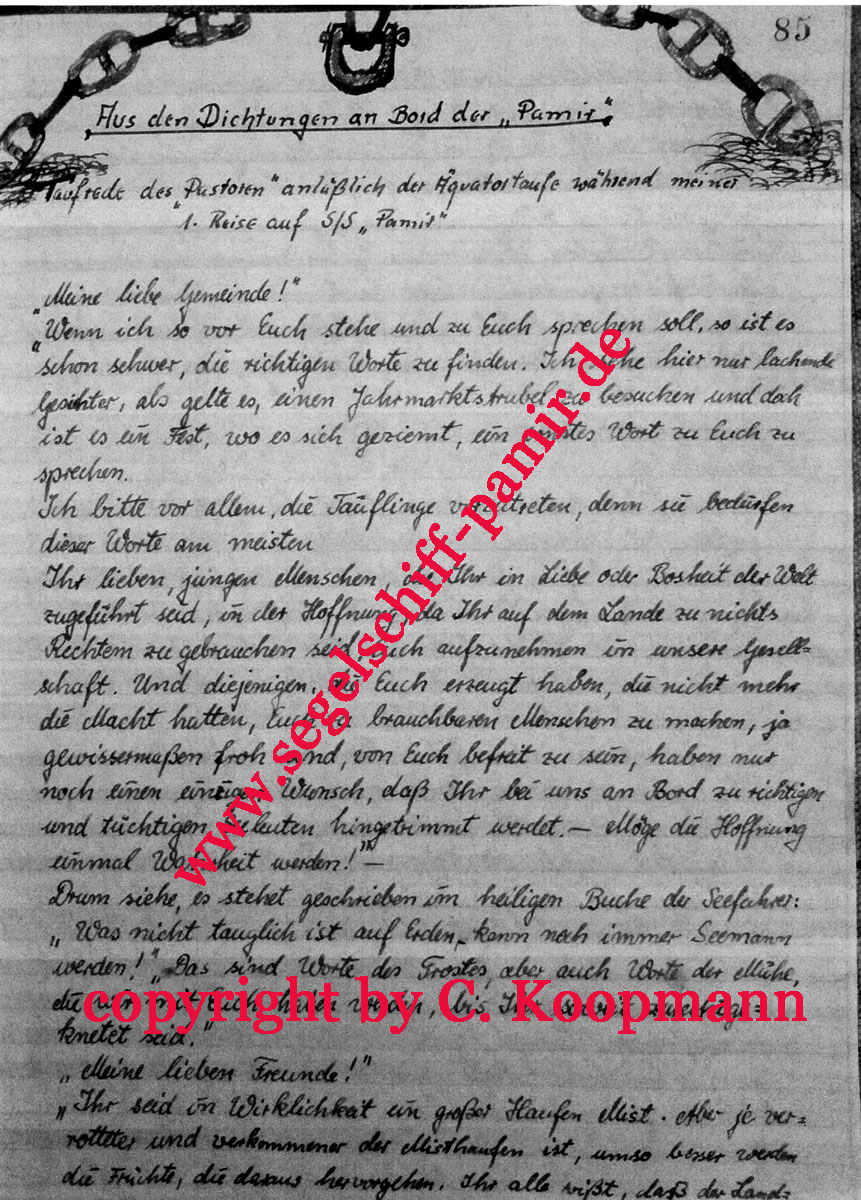 85
Aus den Dichtungen an Bord der „Pamir“
Taufrede des "Pastoren" anläßlich der Äquatortaufe während meiner
1. Reise auf S/S „Pamir“
„Meine liebe Gemeinde!“
„Wenn ich so vor Euch stehe und zu Euch sprechen soll, so ist es
schon schwer, die richtigen Worte zu finden. Ich sehe hier nur lachende
Gesichter, als gelte es, einen Jahrmarktstrubel zu besuchen und doch
ist es ein Fest, wo es sich geziemt, ein ernstes Wort zu Euch zu
sprechen.
Ich bitte vor allem, die Täuflinge vorzutreten, denn sie bedürfen
dieser Worte am meisten
Ihr lieben, jungen Menschen, die Ihr in Liebe oder Bosheit der Welt
zugeführt seid, in der Hoffnung, da Ihr auf dem Lande zu nichts
Rechtem zu gebrauchen seid, Euch aufzunehmen in unsere Gesell-
schaft. Und diejenigen, die Euch erzeugt haben, die nicht mehr
die Macht hatten, Euch zu brauchbaren Menschen zu machen, ja
gewissermaßen froh sind, von Euch befreit zu sein, haben nur
noch einen einzigen Wunsch, daß Ihr bei uns an Bord zu richtigen
und tüchtigen Seeleuten hingetrimmt werdet. — Möge die Hoffnung
einmal Wahrheit werden!“ —
Drum siehe, es stehet geschrieben im heiligen Buche der Seefahrer:
„Was nicht tauglich ist auf Erden, kann noch immer Seemann
werden!“ „Das sind Worte des Trostes, aber auch Worte der Mühe,
die wir mit Euch haben werden, bis Ihr
knetet seid.“
„Meine lieben Freunde!“
„Ihr seid in Wirklichkeit ein großer Haufen Mist. Aber je ver=
rotteter und verkommener der Misthaufen ist, umso besser werden
die Früchte, die daraus hervorgehen. Ihr alle wißt, daß der Land=
www.segelschiff-pamir.de
copyright by C. Koopmann